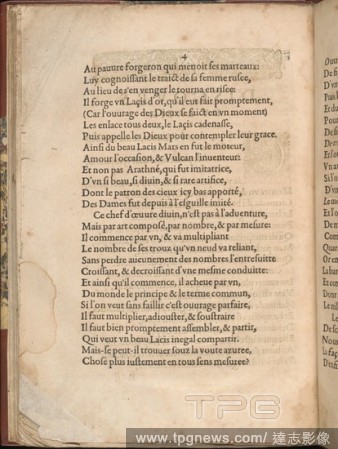 4
Au pauure forgeron qui menoit ses marteaux:
Luy cognoissant le traict de sa femme rusee,
Au lieu de s'en venger le tourna en risee:
Il forge vn Laçis d'or, qu'il eut fait promptement,
(Car l'ouurage des Dieux se faict en vn moment)
Les enlace tous deux, le Laçis cadenasse,
Puis appelle les Dieux pour contempler leur grace.
Ainsi du beau Lacis Mars en fut le moteur,
Amour l'occasion, & Vulcan l'inuenteur:
Et non pas Arathné, qui fut imitatrice,
D'vn si beau, si diuin, & si rare artifice,
Dont le patron des cieux icy bas apporté,
Des Dames fut depuis à l'esguille imité.
Ce chef d'œuure diuin, n'est pas à l'aduenture,
Mais par art composé, par nombre, & par mesure:
Il commence par vn, & va multipliant
Le nombre de ses trouz qu'vn neud va reliant,
Sans perdre aucunement des nombres l'entresuitte
Croissant, & decroissant d'vne mesme conduitte:
Et ainsi qu'il commence, il acheue par vn,
Du monde le principe & le terme commun,
Si l'on veut sans faillir c'est ouurage parfaire,
Il faut multiplier, adiouster, & soustraire
Il faut bien promptement assembler, & partir,
Qui veut vn beau Lacis inegal compartir.
Mais-se peut-il trouuer souz la voute azuree,
Chose plus iustement en tous sens mesuree?
TPG
www.tpgnews.com/達志影像